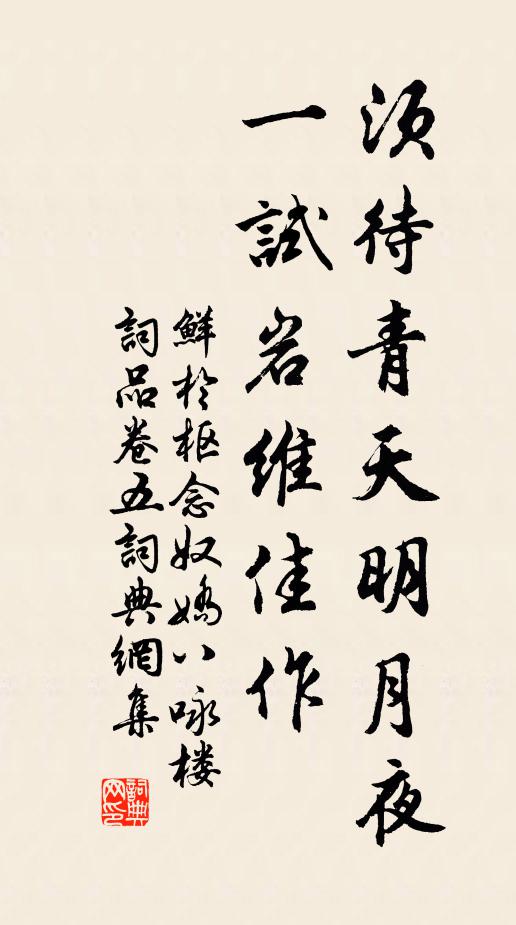 須待青天明月夜
一試岩維佳作
鮮於枢念奴嬌八咏楼
詞品卷五詞典網集
詞典網印